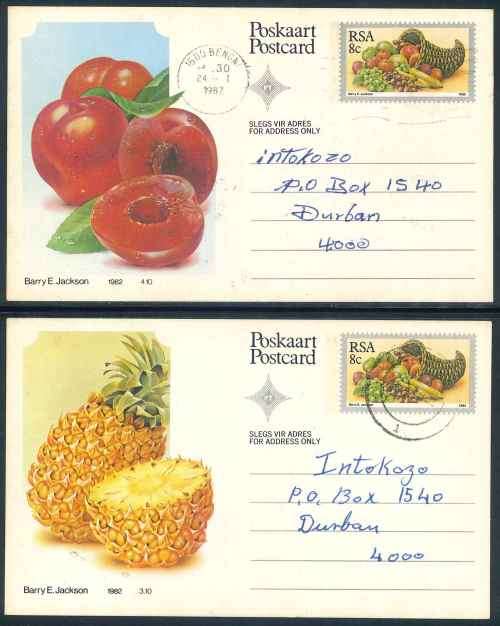 Poskaart
Postcard
RSA
8c
Barry E. Jackson 1982
1500 BENONI
24 - 1
1987
SLEGS VIR ADRES
FOR ADDRESS ONLY
intokozo
P.O Box 1540
Durban
4000
Barry E. Jackson 1982 4.10
Poskaart
Postcard
RSA
8c
Barry E. Jackson 1982
1
SLEGS VIR ADRES
FOR ADDRESS ONLY
Intokozo
P.O. Box 1540
Durban
4000
Barry E. Jackson 1982 3.10